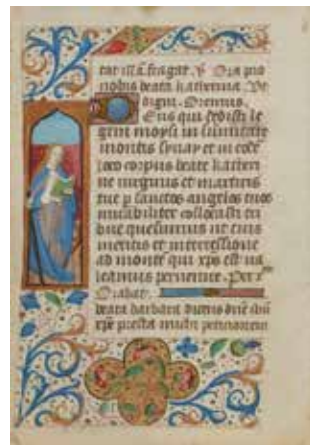 tat illa fragat. v Ora pro
nobis beata katherina. Ut
digni. Oremus.
Deus qui dedisti le
gem moysi in summitate
montis synay et in eodē
loco corpus beate katheri
ne virginis et martiris
tue p sanctos angelos tuos
mirabiliter collocasti tri
bue quesumus ut eius
meritis et intercessione
ad montē qui xps est va
leamus pervenire. Per
Orabat
beata barbara dicens dn̄e ihū
xp̄e presta michi